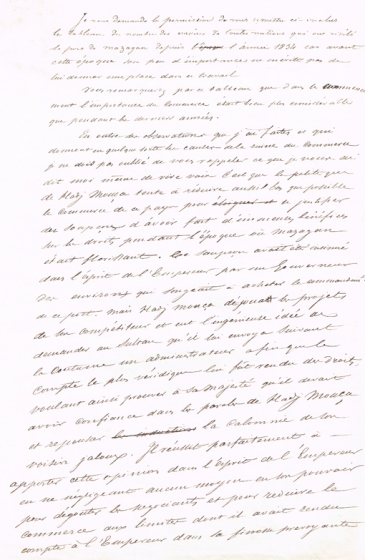 Je vous demande la permission de vous remettre ci-inclus
le tableau du nombre des navires de toutes nations qui ont visité
le port de mazagan depuis l'année 1834 car avant
cette époque son peu d'importance ne mérite pas de
lui donner une place dans ce travail.
Vous remarquerez par ce tableau que dans le commence
ment l'importance du Commerce était bien plus considérable
que pendant les dernières années.
En outre des observations que j'ai faites et qui
donnent en quelque sorte les causes de la ruine du Commerce
je ne dois pas oublier de vous rappeler ce que je vous ai
dit moi même de vive voix. C'est que la politique
de Hadj Mouça tente à réduire autant que possible
le Commerce de ce pays pour se justifier
des soupçons d'avoir fait d'immenses bénéfices
sur les droits pendant l'époque où mazagan
était florissant. Ces soupçons avait été insinué
dans l'esprit de l'Empereur par un Gouverneur
des environs qui songeait à acheter le commandement
de ce port, mais Hadj mouça déjoua les projets
de son compétiteur et eut l'ingénieuse idée de
demander au Sultan qu'il lui envoya suivant
la Coutume un administrateur afin que le
compte le plus véridique lui fut rendu des Droits,
voulant ainsi prouver à sa Majesté qu'il devait
avoir confiance dans les paroles de Hadj Mouça
et repousser la calomnie de son
voisin jaloux. Il réussit parfaitement à
apporter cette opinion dans l'esprit de l'Empereur
en ne négligeant aucun moyen en son pouvoir
pour dégouter les négociants et pour réduire le
commerce aux limites dont il avait rendu
compte à l'Empereur dans la pensée prévoyante